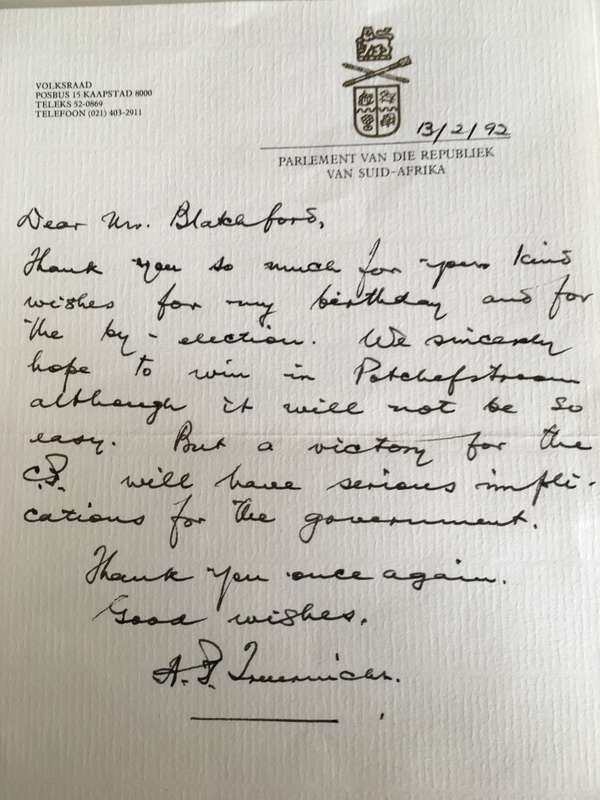 VOLKSRAAD
POSBUS 15 KAAPSTAD 8000
TELEKS 52-0869
TELEFOON (021) 403-2911
13/2/92
PARLEMENT VAN DIE REPUBLIEK
VAN SUID-AFRIKA
Dear Mr. Blakeford,
Thank you so much for your kind
wishes for my birthday and for
the by-election. We sincerely
hope to win in Potchefstroom
although it will not be so
easy. But a victory for the
C.P. will have serious impli-
cations for the government.
Thank you once again.
Good wishes.
A.P. Treurnicht.